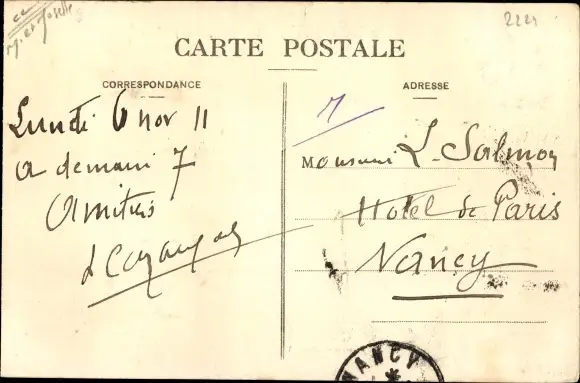 M. et Moselle
2221
CARTE POSTALE
CORRESPONDANCE
ADRESSE
Lundi 6 nov 11
a demain 7
Amitiés
M
Monsieur L. Salmon
Hotel de Paris
Nancy
NANCY